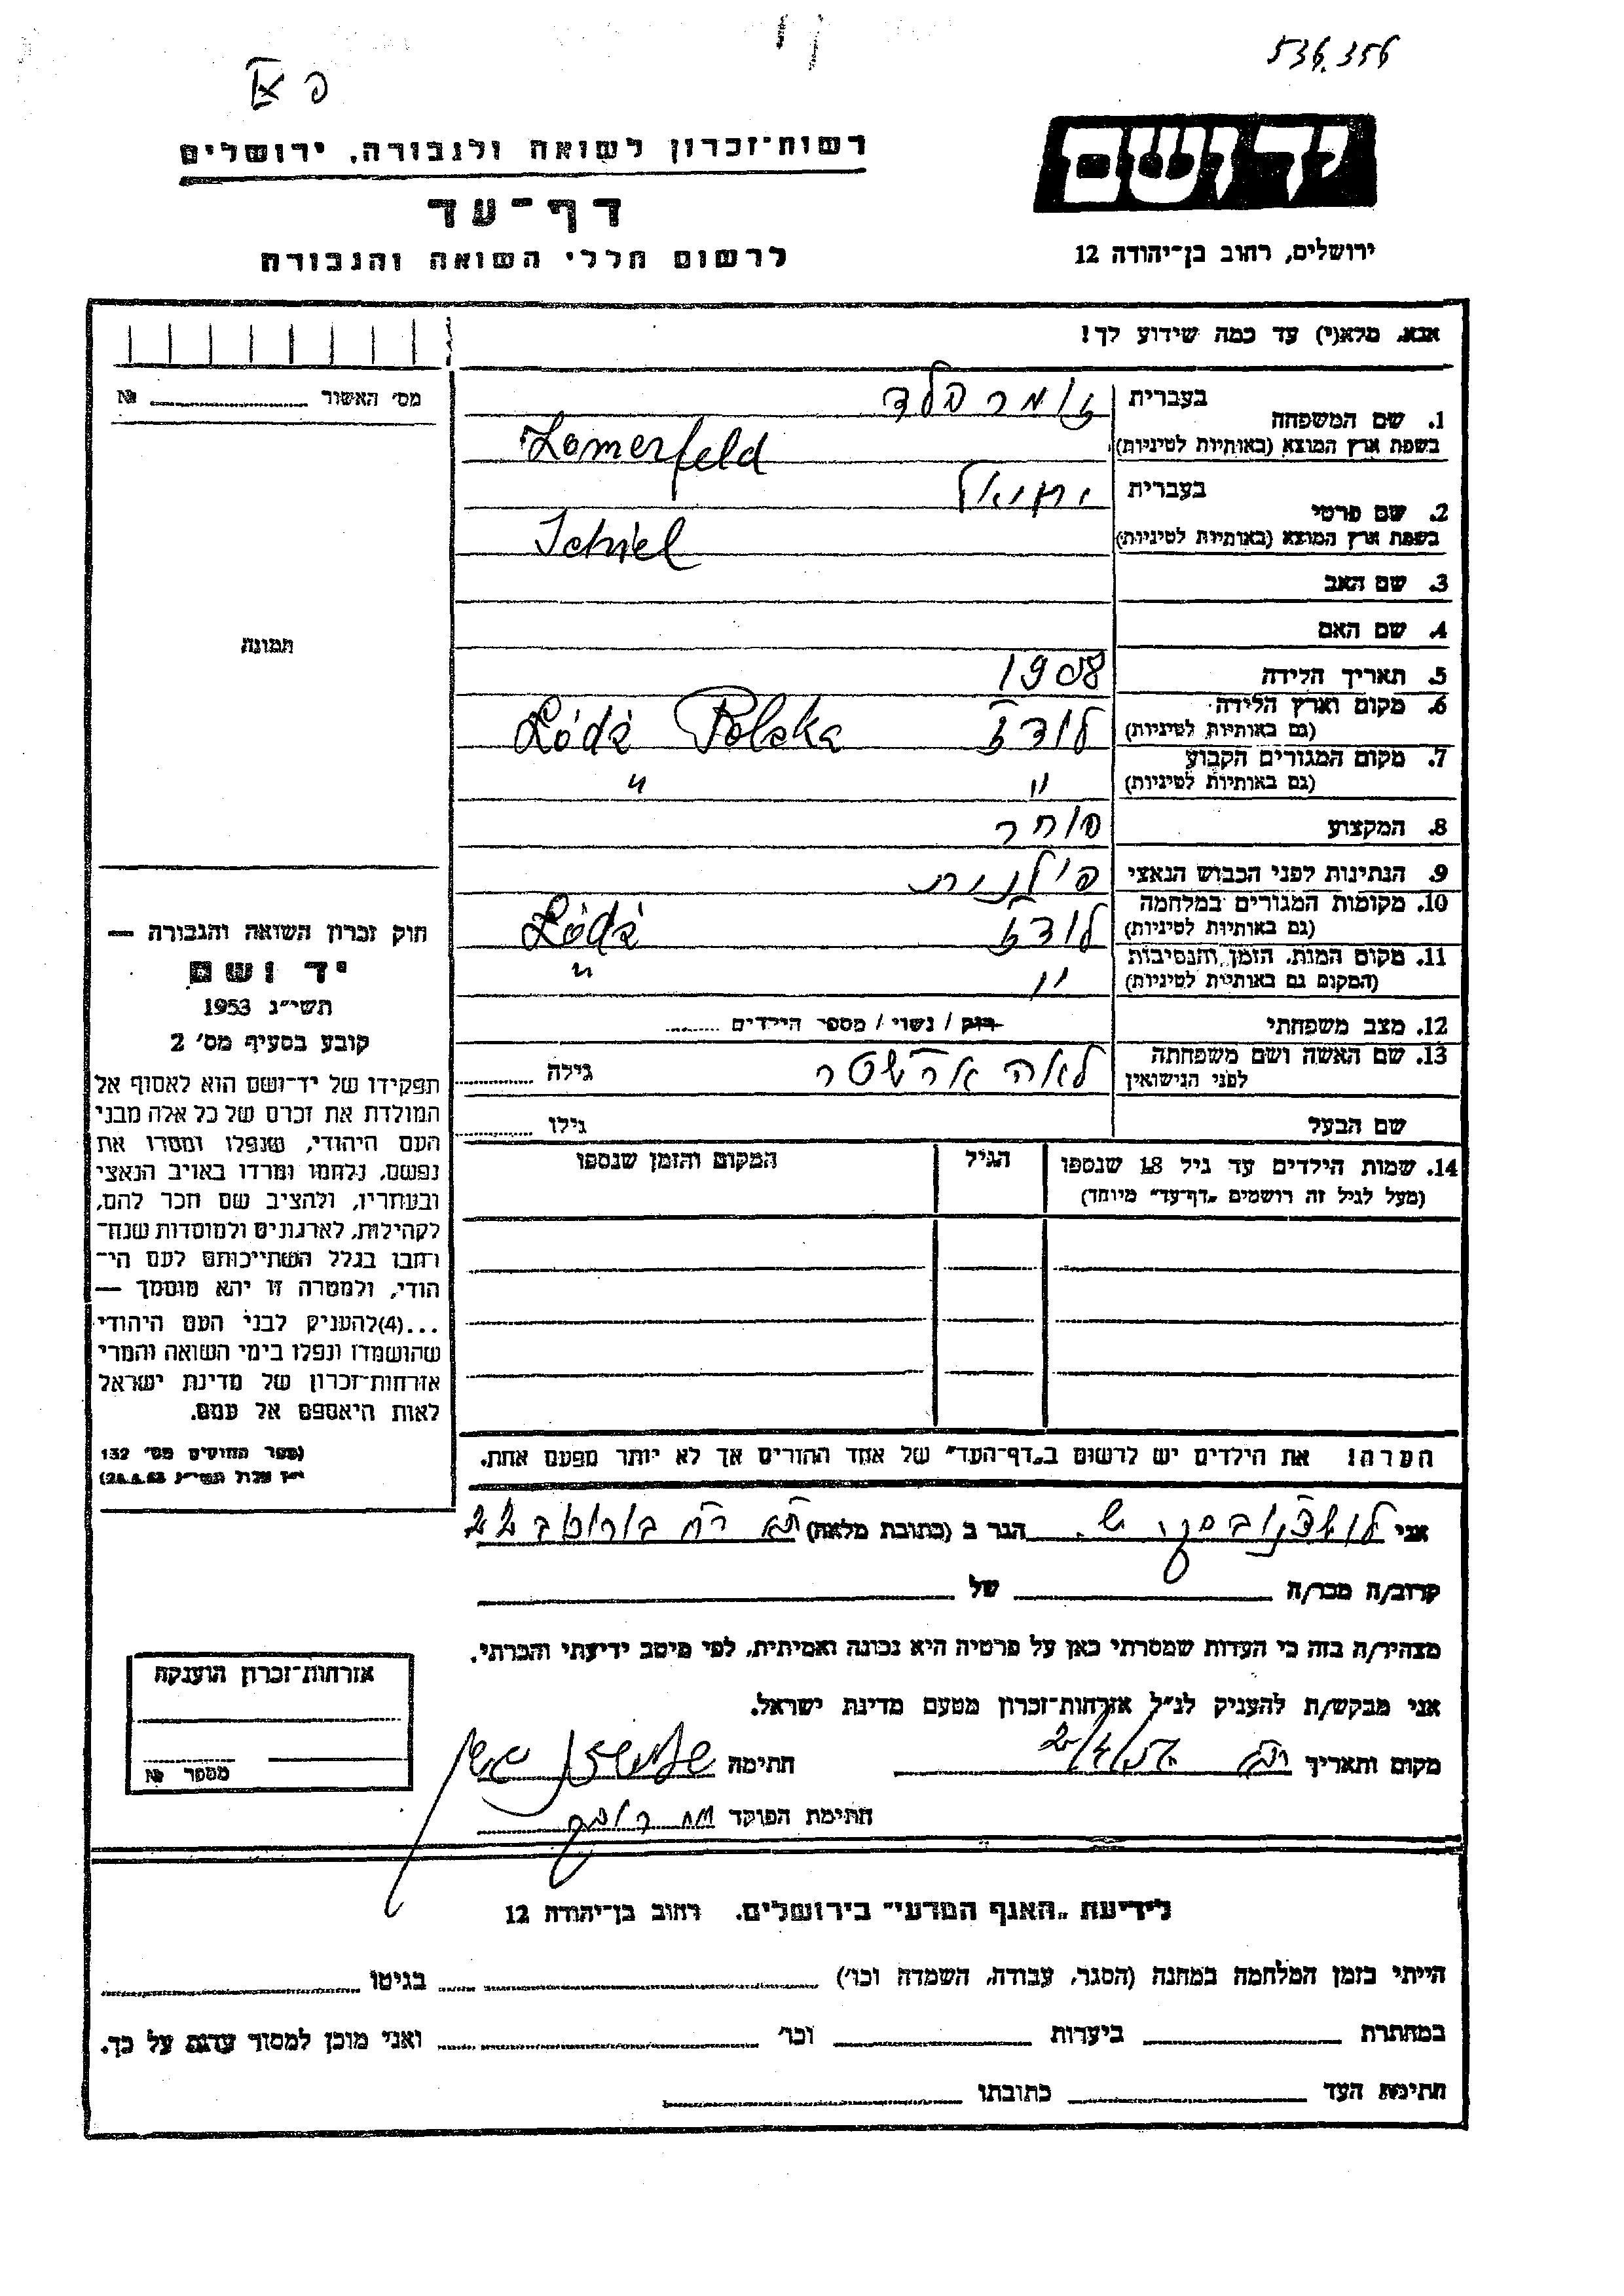 536.356
פ
רשות־זכרון לשואה ולגבורה, ירושלים
דף־עד
לרשום חללי השואה והגבורה
יד ושם
ירושלים, רחוב בן־יהודה 12
אנא, מלא(י) עד כמה שידוע לך!
מס׳ האשור № ..........
תמונה
1. שם המשפחה בעברית זומרפלד
בשפת ארץ המוצא (באותיות לטיניות) Zomerfeld
2. שם פרטי בעברית יחיאל
בשפת ארץ המוצא (באותיות לטיניות) Ichiel
3. שם האב
4. שם האם
5. תאריך הלידה 1908
6. מקום וארץ הלידה (גם באותיות לטיניות) לודז Łódź Polska
7. מקום המגורים הקבוע (גם באותיות לטיניות) " "
8. המקצוע סוחר
9. הנתינות לפני הכבוש הנאצי פולנית
10. מקומות המגורים במלחמה (גם באותיות לטיניות) לודז Łódź
11. מקום המות, הזמן והנסיבות (המקום גם באותיות לטיניות) " "
12. מצב משפחתי רוק / נשוי / מספר הילדים ........
13. שם האשה ושם משפחתה לפני הנישואין לאה גילה ..........
שם הבעל גילו ..........
14. שמות הילדים עד גיל 18 שנספו הגיל המקום והזמן שנספו
(מעל לגיל זה רושמים „דף־עד״ מיוחד)
הערה! את הילדים יש לרשום ב„דף־העד״ של אחד ההורים אך לא יותר מפעם אחת.
חוק זכרון השואה והגבורה —
יד ושם
תשי״ג 1953
קובע בסעיף מס׳ 2
תפקידו של יד־ושם הוא לאסוף אל
המולדת את זכרם של כל אלה מבני
העם היהודי, שנפלו ומסרו את
נפשם, נלחמו ומרדו באויב הנאצי
ובעוזריו, ולהציב שם וזכר להם,
לקהילות, לארגונים ולמוסדות שנח־
רבו בגלל השתייכותם לעם הי־
הודי, ולמטרה זו יהא מוסמך —
...(4)להעניק לבני העם היהודי
שהושמדו ונפלו בימי השואה והמרי
אזרחות־זכרון של מדינת ישראל
לאות היאספם אל עמם.
(ספר החוקים מס׳ 132
אני ש. הגר ב (כתובת מלאה) תא רח 22
קרוב/ה מכר/ה של
מצהיר/ה בזה כי העדות שמסרתי כאן על פרטיה היא נכונה ואמיתית, לפי מיטב ידיעתי והכרתי.
אני מבקש/ת להעניק לנ״ל אזרחות־זכרון מטעם מדינת ישראל.
מקום ותאריך חתימה
חתימת הפוקד
אזרחות־זכרון הוענקה
מספר №
לידיעת „האגף המדעי״ בירושלים. רחוב בן־יהודה 12
הייתי בזמן המלחמה במחנה (הסגר, עבודה, השמדה וכו׳) בגיטו
במחתרת ביערות וכו׳ ואני מוכן למסור עדות על כך.
חתימת העד כתובתו